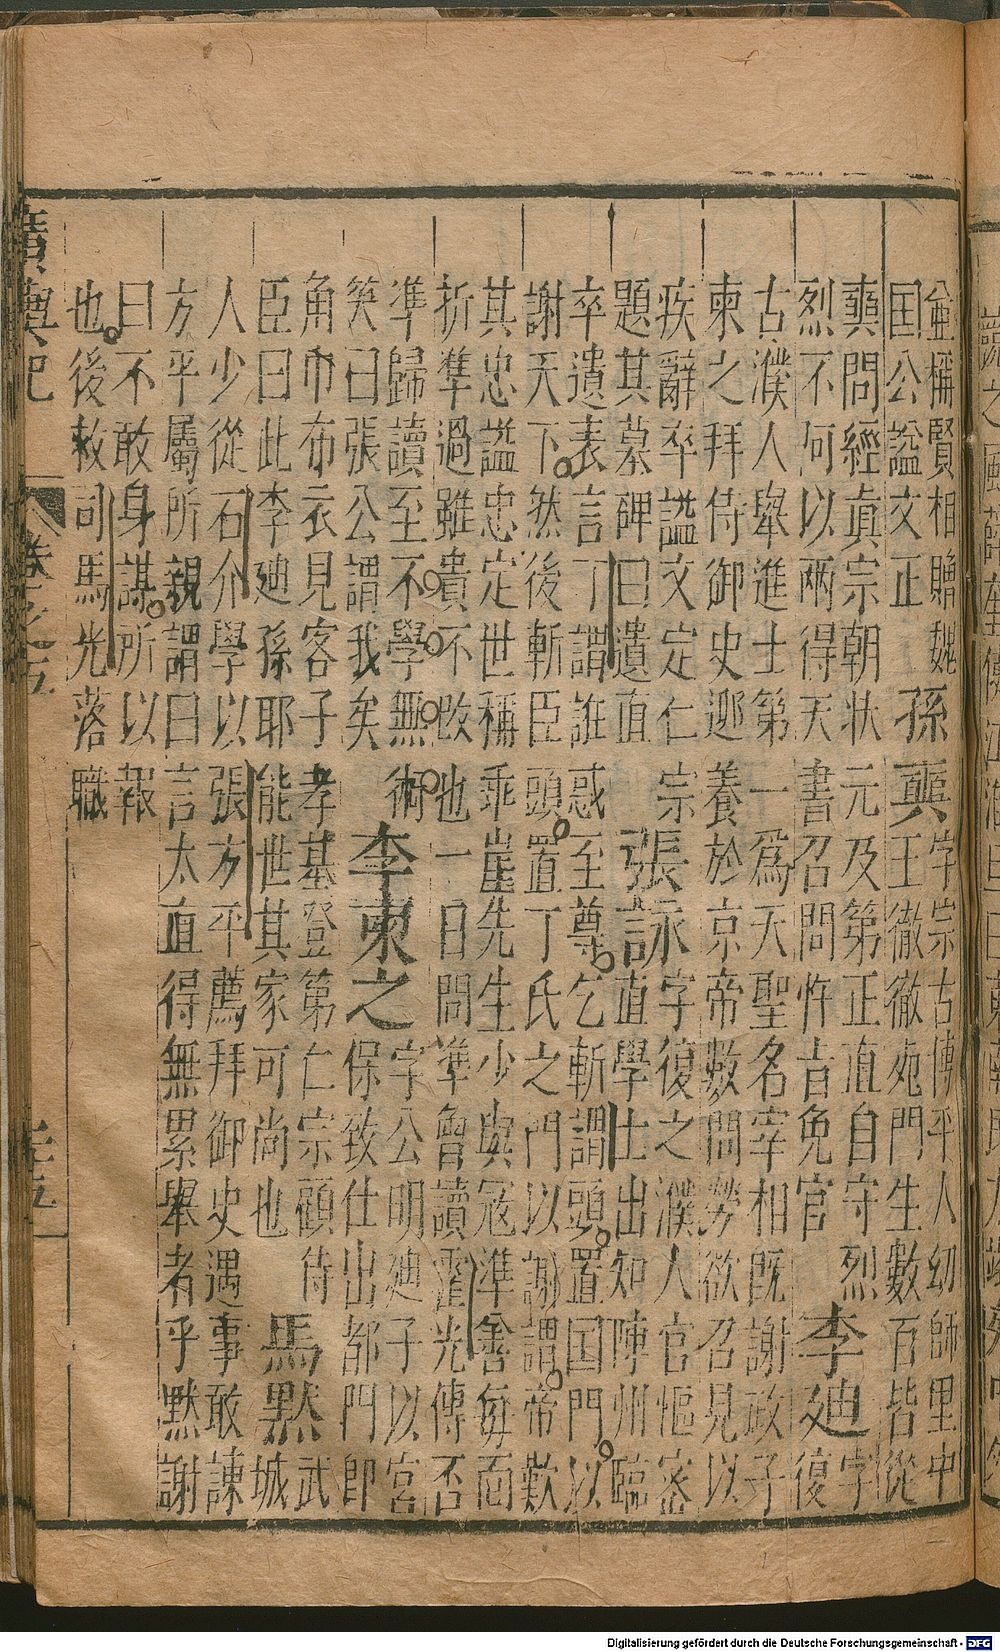 並稱賢相贈魏
国公諡文正
孫奭
字宗古博平人幼師里中
王徹徹死門生數百皆從
奭問經真宗朝狀元及第正直自守烈
烈不何以两得天書召問忤旨免官
李廸
字
復
古濮人舉進士第一為天聖名宰相既謝政子
柬之拜侍御史迎養於京帝數問勞欲召見以
疾辭卒諡文定仁宗
題其墓碑曰遺直
張詠
字復之濮人官樞密
直學士出知陳州臨
卒遺表言丁謂誰惑至尊乞斬謂頭置国門以
謝天下然後斬臣頭置丁氏之門以謝謂帝歎
其忠諡忠定世稱乖崖先生少與冦準善每面
折準過雖貴不改也一日問準曾讀霍光傳否
準歸讀至不學無術
笑曰張公謂我矣
李柬之
字公明廸子以宮
保致仕出都門即
角巾布衣見客子孝基登第仁宗顧侍
臣曰此李廸孫耶能世其家可尚也
馬默
武
城
人少從石介學以張方平薦拜御史遇事敢諫
方平屬所親謂曰言太直得無累舉者乎默謝
曰不敢身謀所以報
也後救司馬光落職
廣輿記
卷之五
Digitalisierung gefördert durch die Deutsche Forschungsgemeinschaft - DFG